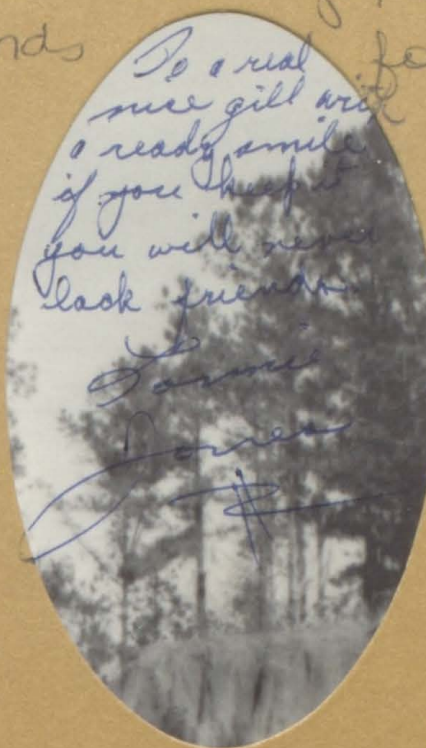 nds
fo
To a real
nice gill with
a ready smile
if you keep it
you will never
lack friends
Jones